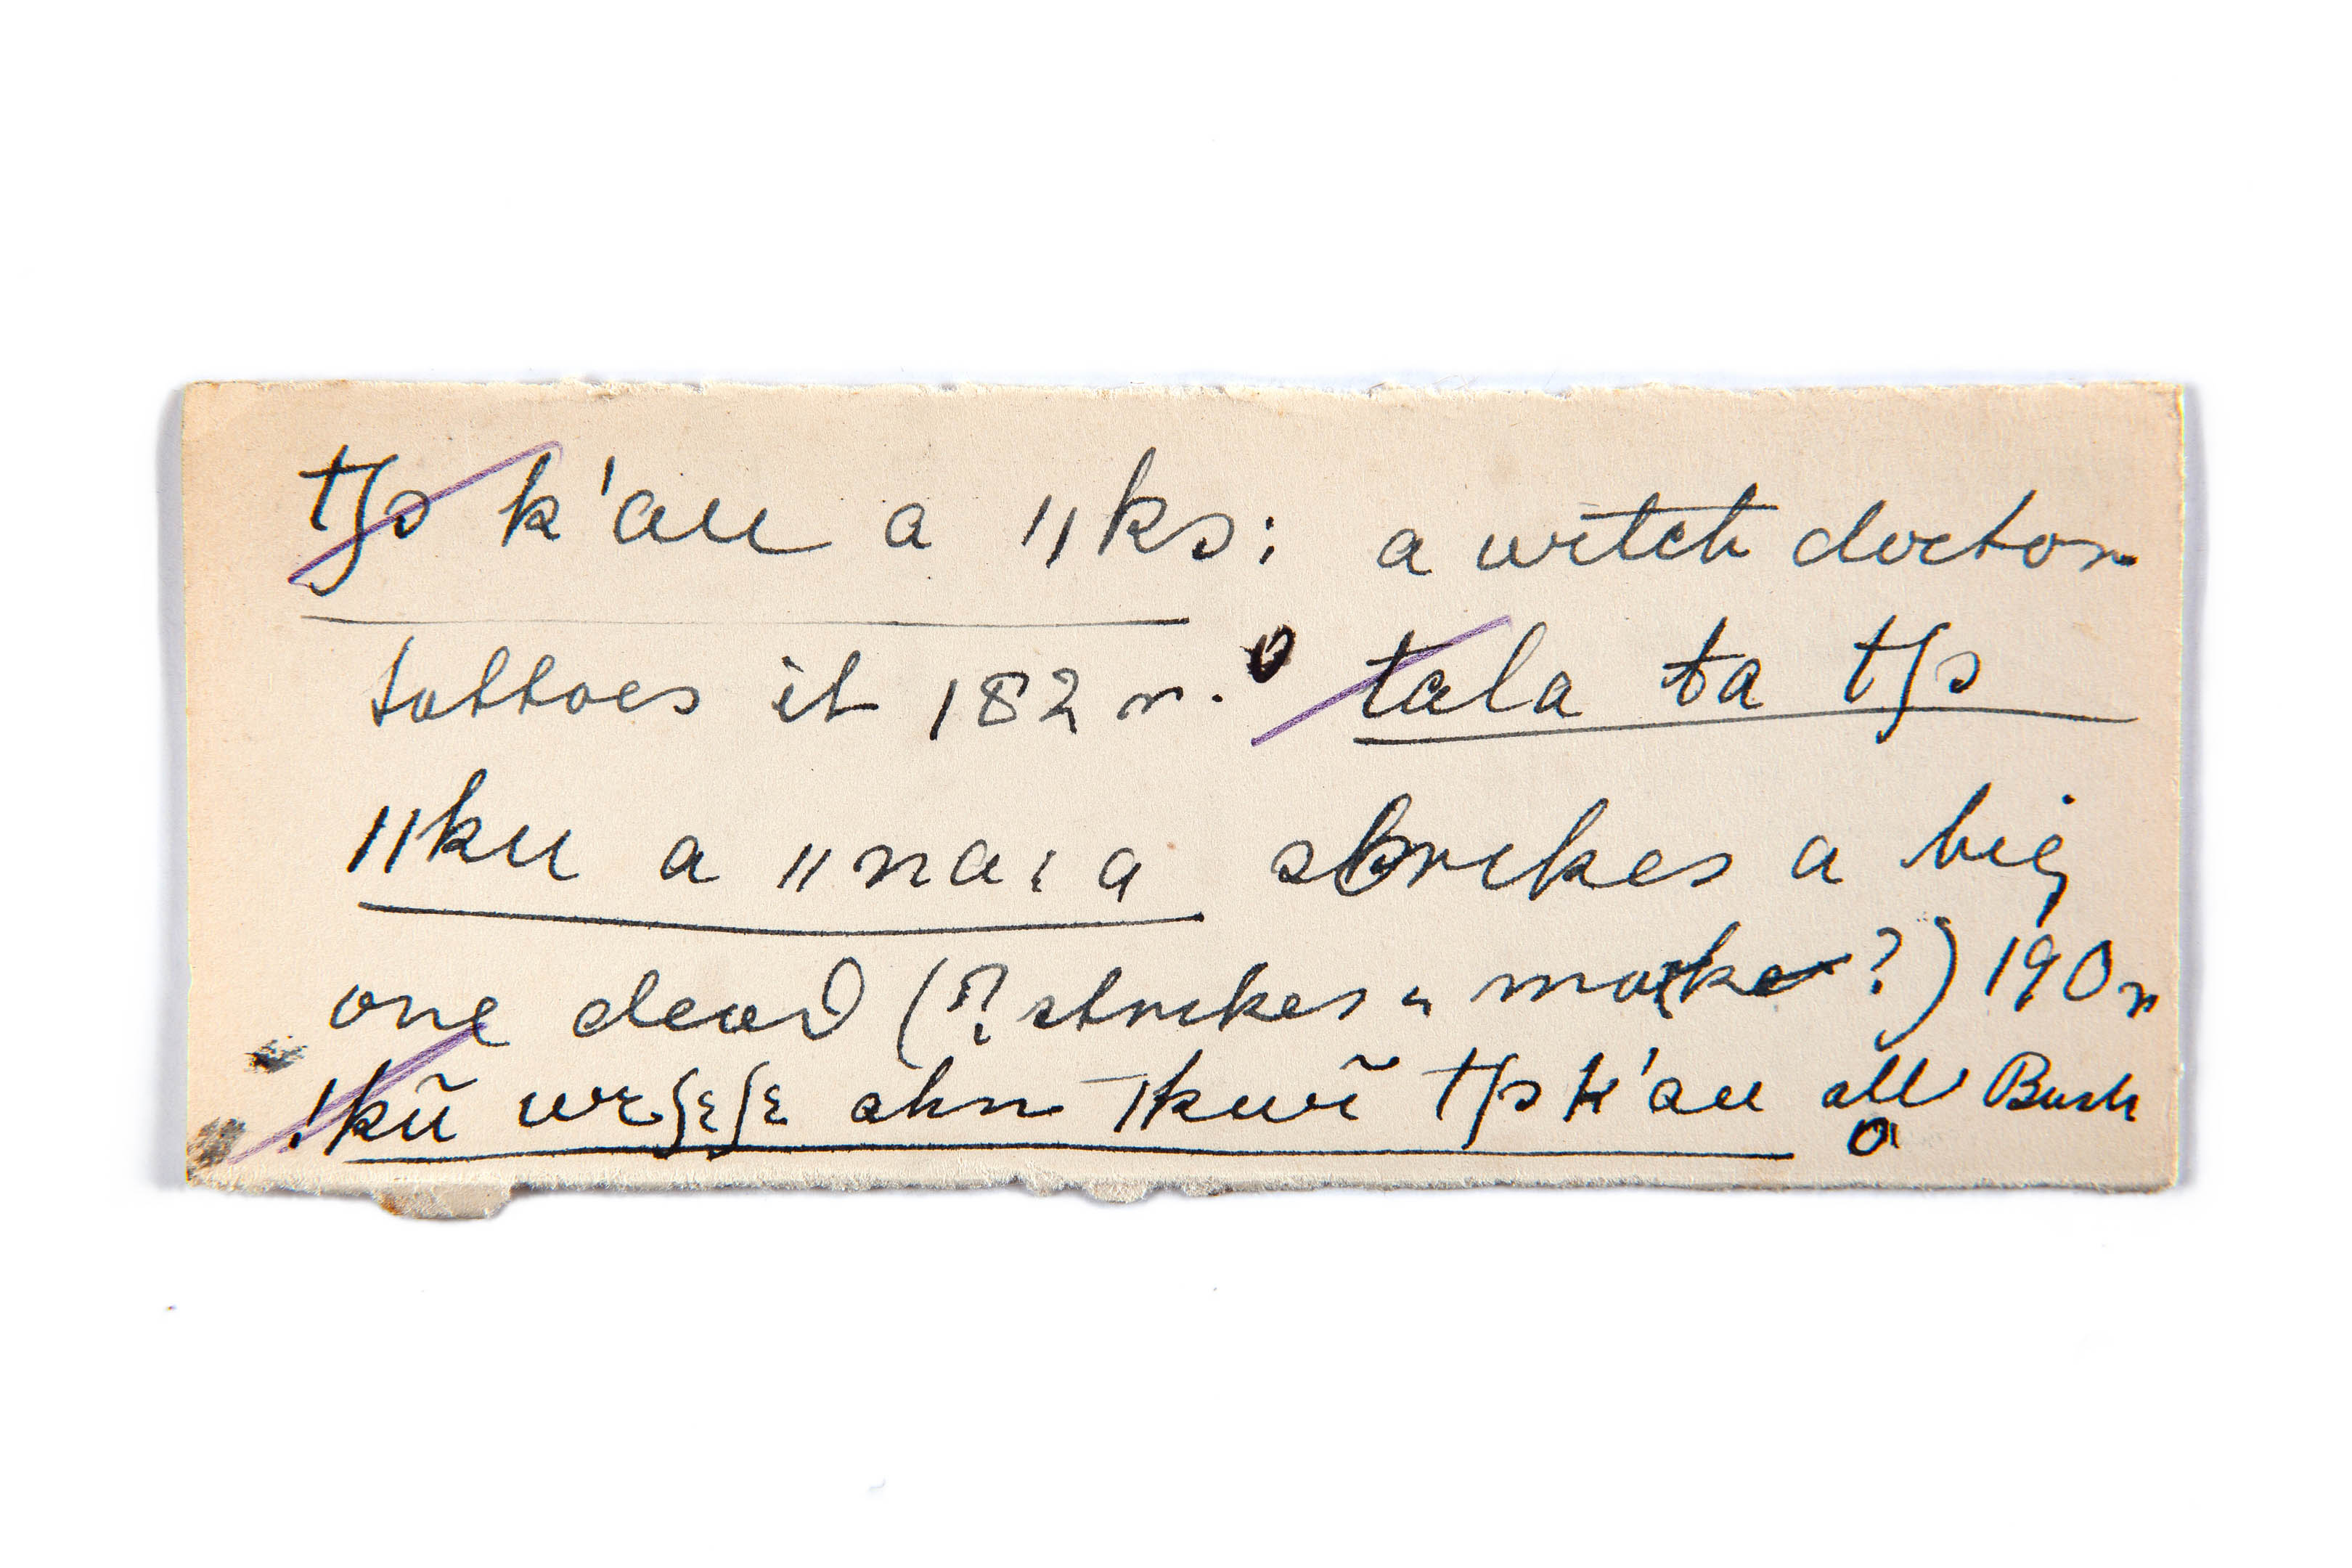 tʃɔ k'au a ǁkɔ: a witch doctor
tattoes it 182 r. tala ta tʃɔ
ǁku a ǁna:a strikes a big
one dead (? strikes a marke ?) 190 r
!kũ wɛʃɛʃɛ ahn ǀkwĩ tʃɔ k'au all Bush